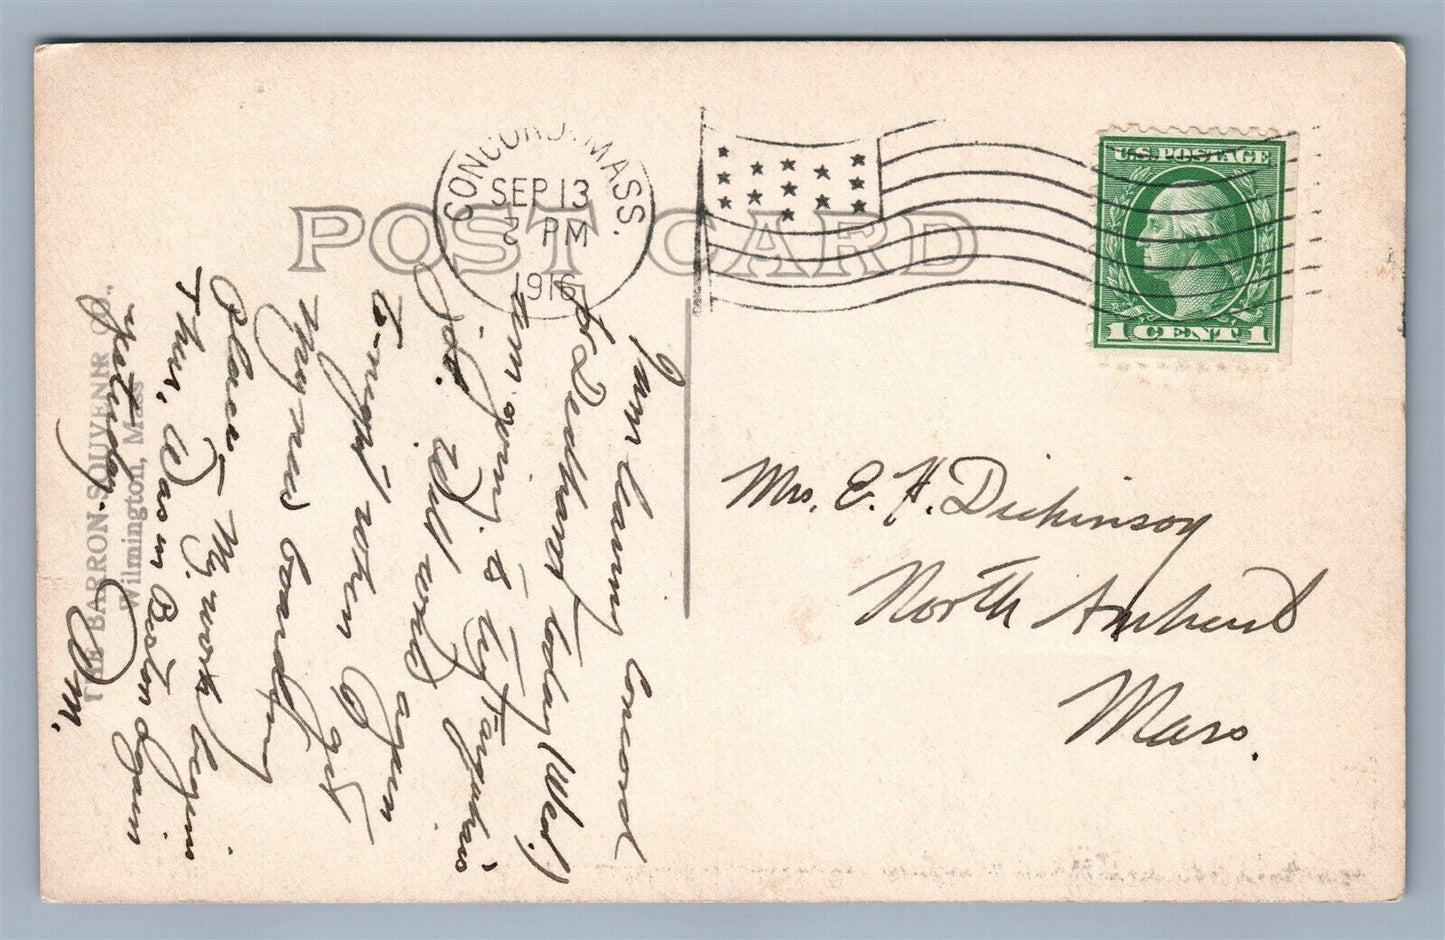 POST CARD
CONCORD. MASS.
SEP 13
PM
1916
U.S. POSTAGE
1 CENT 1
Mrs. E. H. Dickinson
North Amherst
Mass.
I am leaving Concord
for Dedham today (Wed.)
am going to try Farquhar's
job. Will write again
to-night when I get
my new boarding
place. My work begins
Thur, Was in Boston again
yesterday. Wm.
THE BARRON SOUVENIR CO.,
Wilmington, Mass